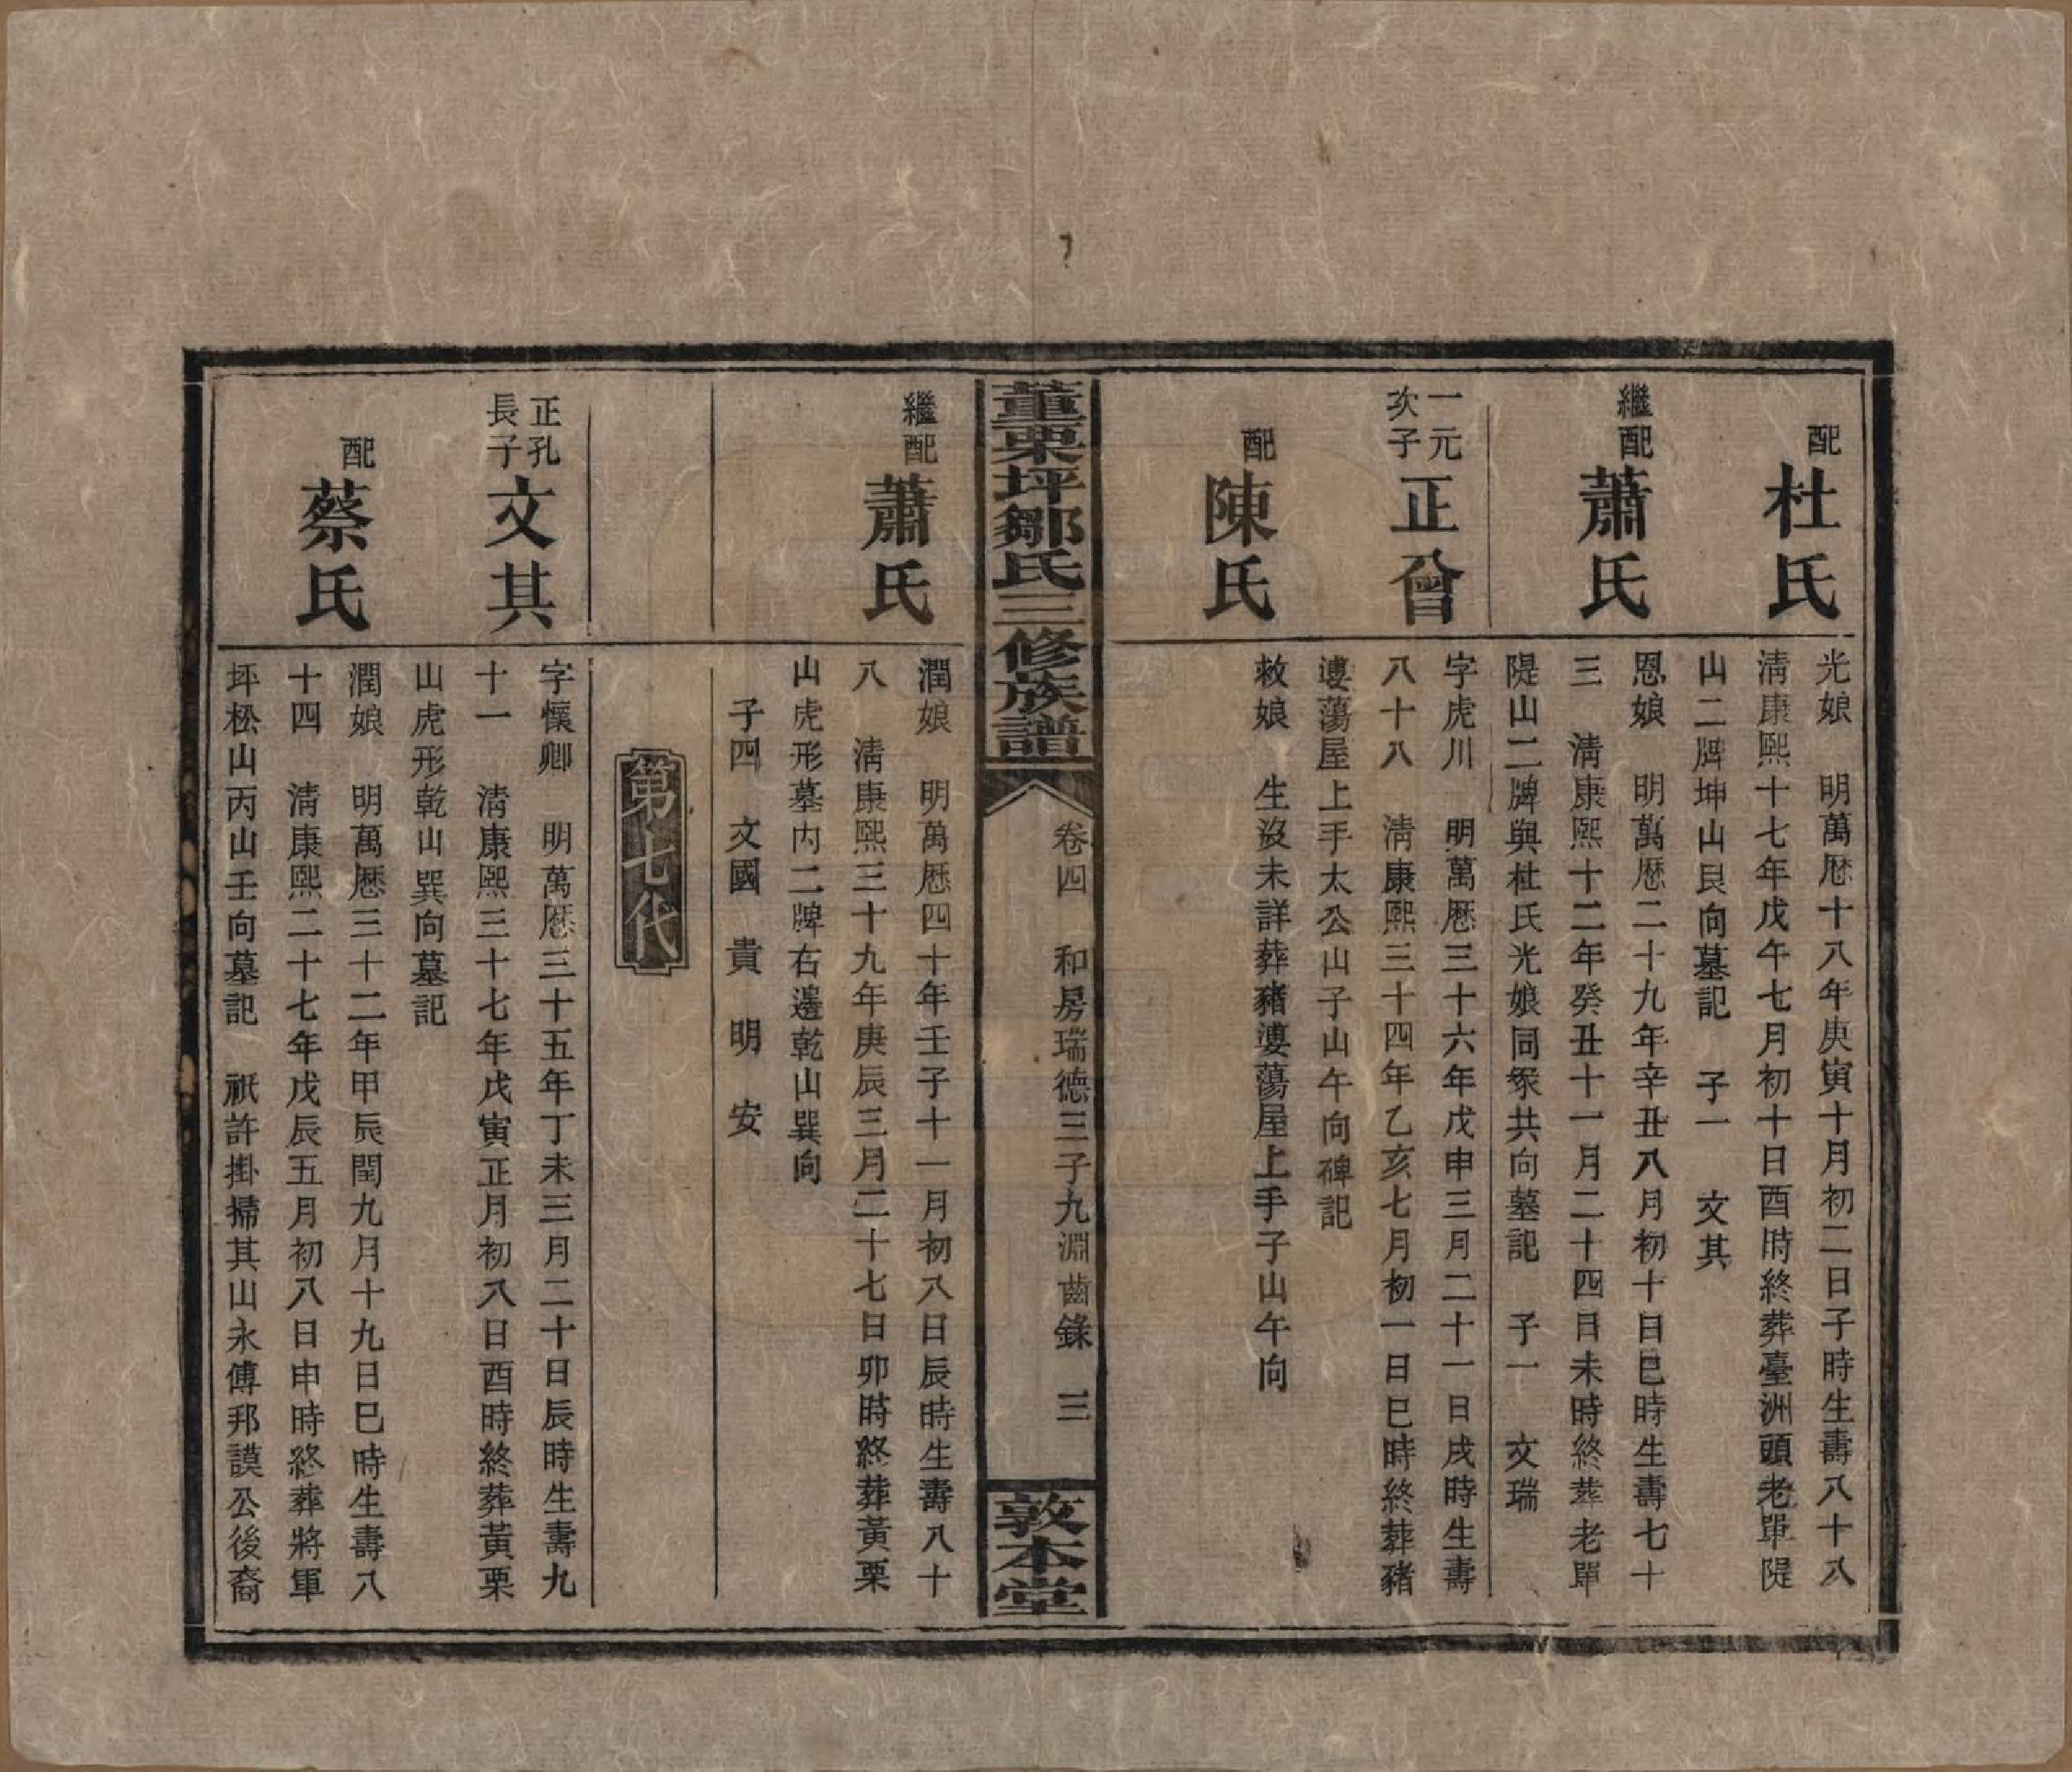 配
杜氏
光娘　明萬厯十八年庚寅十月初二日子時生壽八十八
清康熙十七年戊午七月初十日酉時終葬臺洲頭老單隄
山二牌坤山艮向墓記　子一　文其
繼配
蕭氏
恩娘　明萬厯二十九年辛丑八月初十日巳時生壽七十
三　清康熙十二年癸丑十一月二十四日未時終葬老單
隄山二牌與杜氏光娘同冢共向墓記　子一　文瑞
一元
次子
正曾
字虎川　明萬厯三十六年戊申三月二十一日戌時生壽
八十八　清康熙三十四年乙亥七月初一日巳時終葬豬
婁蕩屋上手太公山子山午向碑記
配
陳氏
敕娘　生沒未詳葬豬婁蕩屋上手子山午向
董栗坪鄒氏三修族譜
卷四　和房瑞德三子九淵齒錄　三
敦本堂
繼配
蕭氏
潤娘　明萬厯四十年壬子十一月初八日辰時生壽八十
八　清康熙三十九年庚辰三月二十七日卯時終葬黃栗
山虎形墓內二牌右邊乾山巽向
子四　文國　貴　明　安
第七代
正孔
長子
文其
字懷卿　明萬厯三十五年丁未三月二十日辰時生壽九
十一　清康熙三十七年戊寅正月初八日酉時終葬黃栗
山虎形乾山巽向墓記
配
蔡氏
潤娘　明萬厯三十二年甲辰閏九月十九日巳時生壽八
十四　清康熙二十七年戊辰五月初八日申時終葬將軍
坪松山丙山壬向墓記　祇許掛掃其山永傅邦謨公後裔